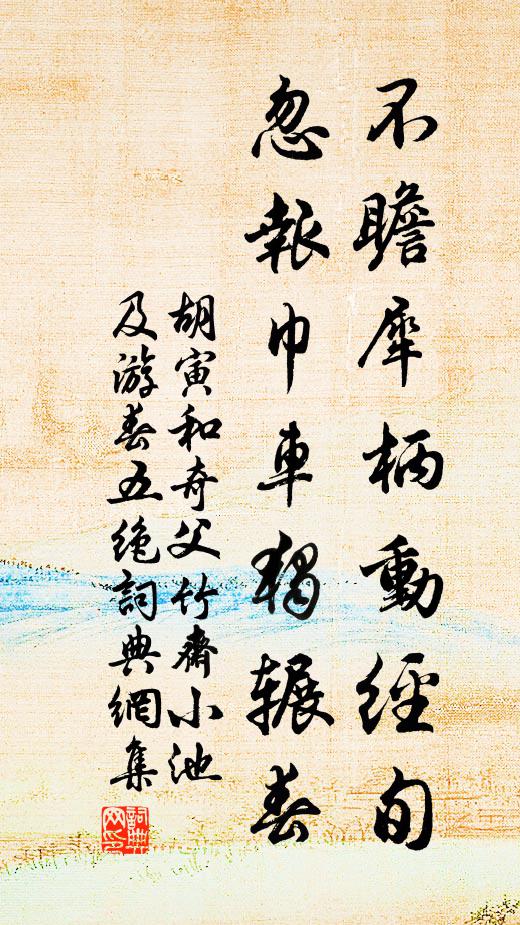 不瞻犀柄動經旬
忽報巾車獨輾春
胡寅和奇父竹齋小池
及游春五绝詞典網集
詞典网印